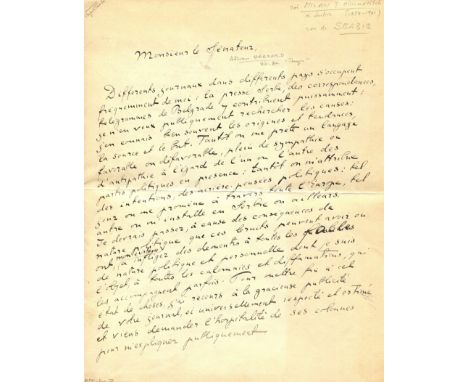 roi MILAN
SERBIE
Monsieur le Sénateur,
Différents journaux dans différents pays s'occupent
fréquemment de moi; la presse serbe, des correspondances,
télégrammes de Belgrade y contribuent puissamment;
je n'en veux publiquement rechercher les causes;
j'en connais bien souvent les origines et tendances,
la source et le but. Tantôt on me prête un langage
favorable ou défavorable, plein de sympathie ou
d'antipathie à l'égard de l'un ou l'autre des
partis politiques en présence; tantôt on m'attribue
des intentions, des arrière-pensées politiques; tel
jour on me promène à travers toute l'Europe, tel
autre on m'installe en Serbie ou ailleurs.
Je devrais passer, à cause des conséquences de
nature politique que ces bruits peuvent avoir ou
ont à infliger des démentis à toutes les
de nature politique et personnelle dont je suis
l'objet à toutes les calomnies et diffamations, qui
les accompagnent parfois. Pour mettre fin à cet
état de choses, j'ai recours à la gracieuse publicité
de votre journal, si universellement respecté et estimé
et viens demander l'hospitalité de ses colonnes
pour m'expliquer publiquement